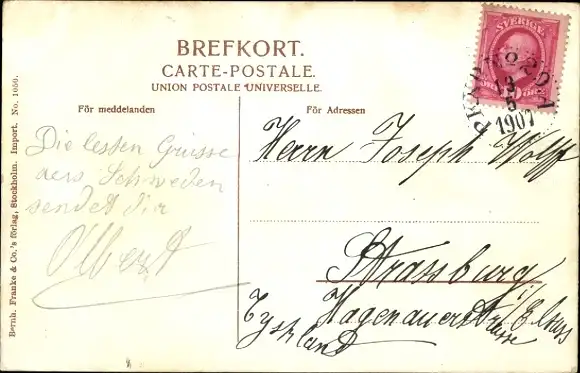 BREFKORT.
CARTE-POSTALE.
UNION POSTALE UNIVERSELLE.
För meddelanden
För Adressen
SVERIGE
PKXP No 2
13
5
1907
Bernh. Franke & Co.'s förlag, Stockholm. Import. No. 1050.
Die Grüsse
aus Schweden
sendet dir
Albert
Herrn Joseph Wolff
Strassburg i/Elsass
Hagenauerstrasse
Tyskland